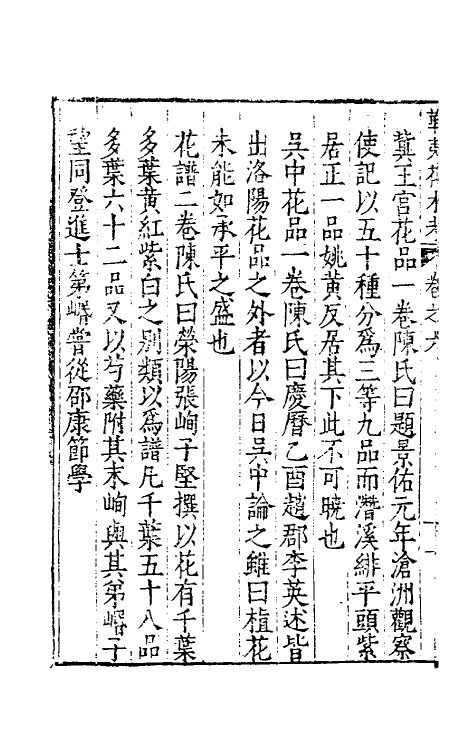 華夷花木考 卷之六
冀王宮花品一卷陳氏曰題景佑元年滄洲觀察
使記以五十種分爲三等九品而潛溪緋平頭紫
居正一品姚黃反居其下此不可曉也
吳中花品一卷陳氏曰慶曆乙酉趙郡李英述皆
出洛陽花品之外者以今日吳中論之雖曰植花
未能如承平之盛也
花譜二卷陳氏曰榮陽張峋子堅撰以花有千葉
多葉黃紅紫白之別類以爲譜凡千葉五十八品
多葉六十二品又以芍藥附其末峋與其弟㟭子
望同登進士第㟭嘗從邵康節學